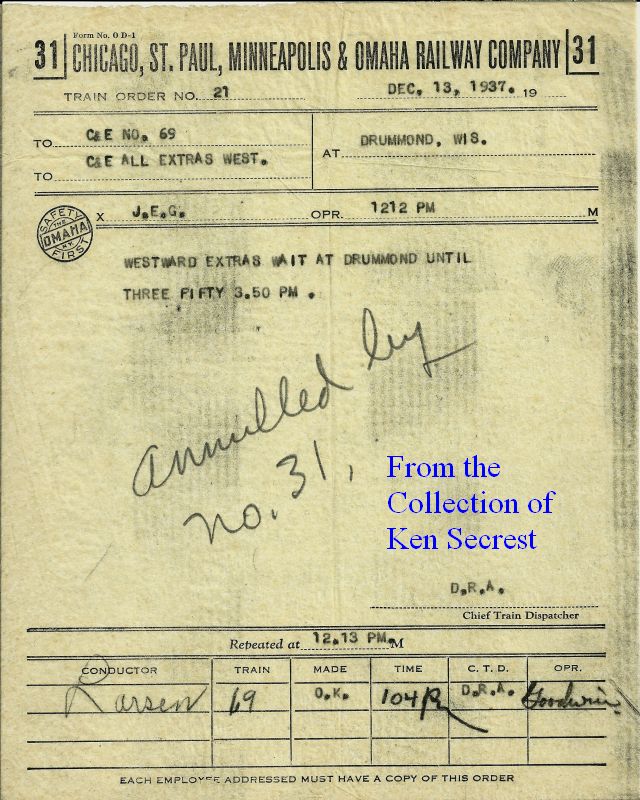 Form No. O D-1
31 CHICAGO, ST. PAUL, MINNEAPOLIS & OMAHA RAILWAY COMPANY 31
TRAIN ORDER NO. 21 DEC. 13, 1937. 19
TO C&E NO. 69
TO C&E ALL EXTRAS WEST.
AT DRUMMOND, WIS.
SAFETY FIRST
THE OMAHA RY
X J.E.G. OPR. 1212 PM M
WESTWARD EXTRAS WAIT AT DRUMMOND UNTIL
THREE FIFTY 3.50 PM .
annulled by
no. 31,
From the
Collection of
Ken Secrest
D.R.A.
Chief Train Dispatcher
Repeated at 12.13 PM. M
CONDUCTOR TRAIN MADE TIME C. T. D. OPR.
Larsen 69 O.K. 104 PM D.R.A. Goodwin
EACH EMPLOYEE ADDRESSED MUST HAVE A COPY OF THIS ORDER